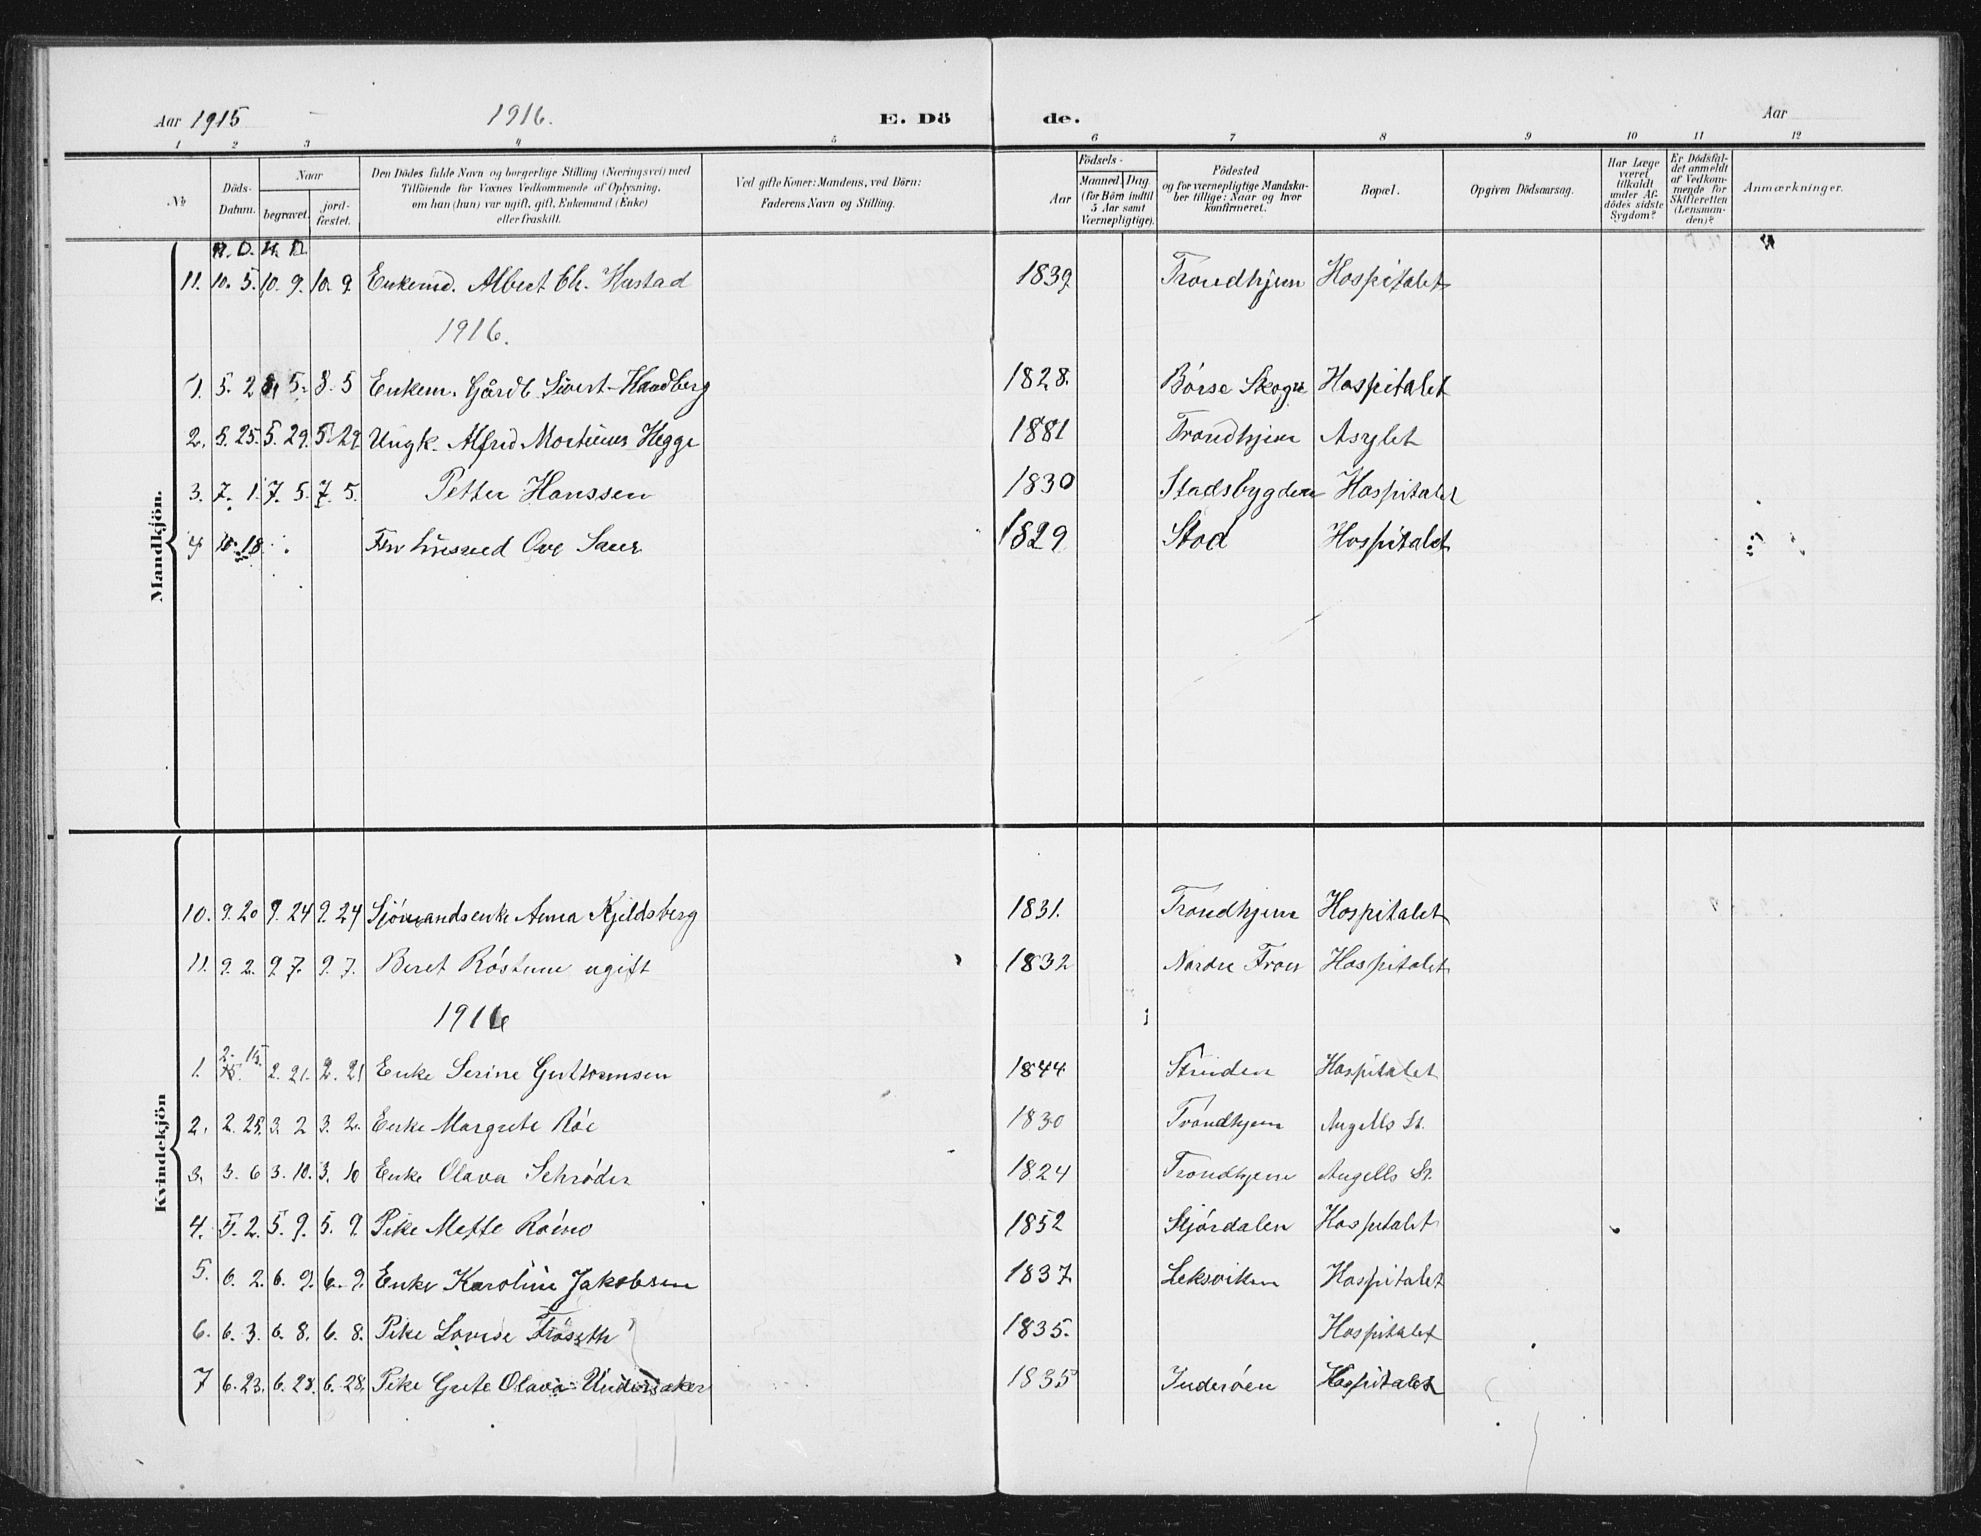 Aar 1915 1916. E. Döde. Aar
1 2 3 4 5 6 7 8 9 10 11 12
№
Döds-Datum.
Naar
begravet.
jordfæstet.
Den Dödes fulde Navn og borgerlige Stilling (Næringsvei) med
Tilföiende for Voxnes Vedkommende af Oplysning,
om han (hun) var ugift, gift, Enkemand (Enke)
eller fraskilt.
Ved gifte Koner: Mandens, ved Börn:
Faderens Navn og Stilling.
Aar
Födsels-
Maaned. Dag.
(for Börn indtil
5 Aar samt
Værnepligtige).
Födested
og for værnepligtige Mandskaber tillige: Naar og hvor
konfirmeret.
Bopæl.
Opgiven Dödsaarsag.
Har Læge
været
tilkaldt
under Afdödes sidste
Sygdom?
Er Dödsfaldet anmeldt
af Vedkommende for
Skifteretten
(Lensmanden)?
Anmærkninger.
Mandkjön.
M. D. M. D.
11. 10. 5. 10. 9. 10. 9 Enkemd. Albert Chr. Hustad 1839 Trondhjem Hospitalet
1916.
1. 5. 2 8. 5. 8. 5 Enkem. Gårdb. Sivert Haudberg 1828. Börse Skogn Hospitalet
2. 5. 25. 5. 29. 5. 29. Ungk. Alfred Mortinus Hegge 1881 Trondhjem Asylet
3. 7. 1. 7. 5. 7. 5. Petter Hanssen 1830 Stadsbygden Hospitalet
4 10. 18 Fhv husmd Ove Saur 1829 Stod Hospitalet
Kvindekjön
10. 9. 20 9. 24 9. 24 Sjömandsenke Anna Kjeldsberg 1831. Trondhjem Hospitalet
11. 9. 2. 9 7. 9. 7. Beret Röstum ugift 1832 Nordre Fron Hospitalet
1916
1. 2. 15. 2. 21. 2. 21 Enke Serine Guttormsen 1844 Strinden Hospitalet
2. 2. 25. 3. 2 3. 2. Enke Margrete Röe 1830 Trondhjem Angells St.
3. 3. 6 3. 10. 3. 10 Enke Olava Schröder 1824 Trondhjem Angells St.
4. 5. 2. 5. 9. 5. 9. Pike Mette Roimo 1852 Stjördalen Hospitalet
5. 6. 2. 6. 9. 6. 9. Enke Karoline Jakobsen 1837 Leksviken Hospitalet
6. 6. 3. 6. 8. 6. 8. Pike Lovise Fröseth 1835. Hospitalet
7 6. 23. 6. 28. 6. 28. Pike Grete Olava Undersaker 1835 Inderöen Hospitalet